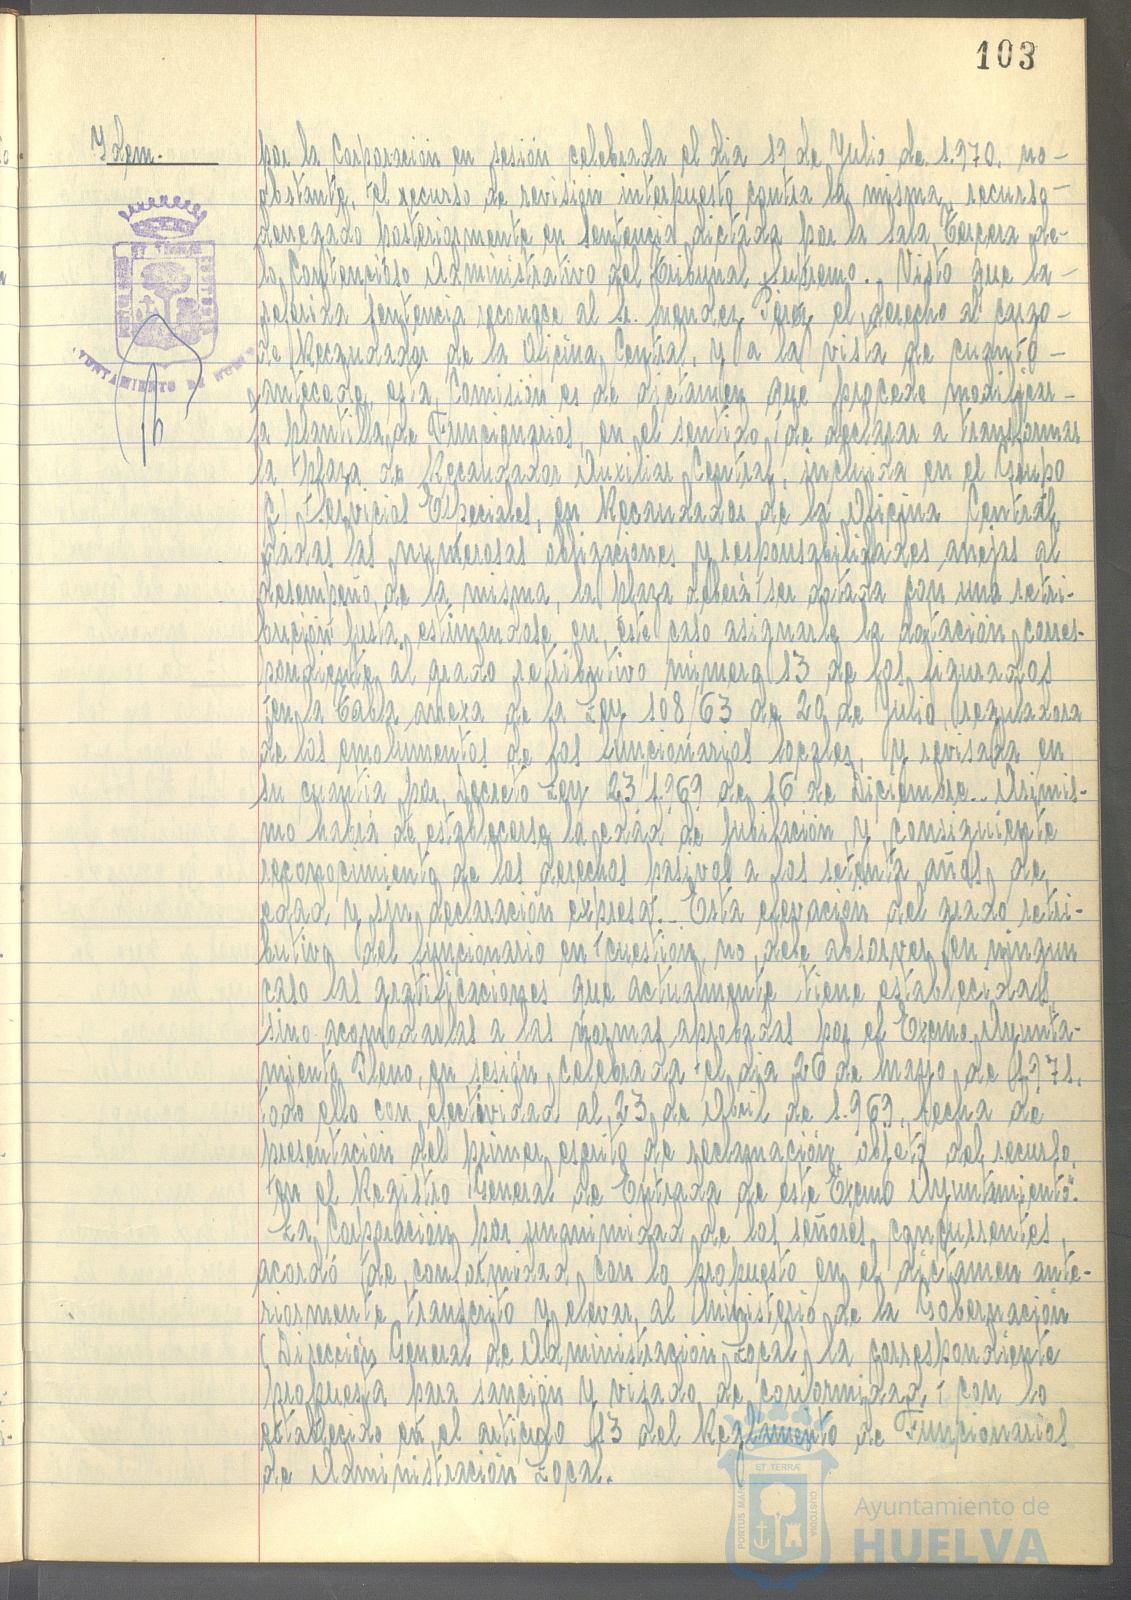 103
Idem.
por la Corporación en sesión celebrada el dia 19 de Julio de 1.970, no-
obstante, el recurso de revisión interpuesto contra la misma, recurso-
denegado posteriormente en sentencia dictada por la Sala Tercera de-
lo Contencioso Administrativo del Tribunal Supremo.. Visto que la-
referida sentencia reconoce al Sr. Mendez Pérez el derecho al cargo-
de Recaudador de la Oficina Central, y a la vista de cuanto-
antecede, esta Comisión es de dictamen que procede modificar-
la plantilla de Funcionarios, en el sentido de declarar a transformar
la plaza de Recaudador Auxiliar Central, incluida en el Grupo
Servicios Especiales, en Recaudador de la Oficina Central
dadas las numerosas obligaciones y responsabilidades anejas al
desempeño de la misma, la plaza deberá ser dotada con una retri-
bución justa, estimandose en este caso asignarle la dotación corres-
pondiente al grado retributivo número 13 de los figurados
en la Tabla anexa de la Ley 108/63 de 20 de Julio, reguladora
de los emolumentos de los funcionarios locales, y revisada en
su cuantia por Decreto Ley 23/1.969 de 16 de Diciembre.. Asimis-
mo habrá de establecerse la edad de jubilación y consiguiente
reconocimiento de los derechos pasivos a los setenta años de
edad y sin declaración expresa.- Esta elevación del grado retri-
butivo del funcionario en cuestión, no debe absorver en ningun
caso las gratificaciones que actualmente tiene establecidas,
sino acomodarlas a las normas aprobadas por el Excmo. Ayunta-
miento Pleno, en sesión celebrada el dia 26 de Marzo de 1.971,
todo ello con efectividad al 23 de Abril de 1.969, fecha de
presentación del primer escrito de reclamación objeto del recurso,
en el Registro General de Entrada de este Excmo Ayuntamiento".
La Corporación por unanimidad de los señores concurrentes,
acordó de conformidad con lo propuesto en el dictamen ante-
riormente transcrito y elevar al Ministerio de la Gobernación
(Dirección General de Administración Local) la correspondiente
propuesta para sanción y visado de conformidad con lo
establecido en el articulo 13 del Reglamento de Funcionarios
de Administración Local.
AYUNTAMIENTO DE HUELVA
PORTUS MARIS ET TERRÆ CUSTODIA
Ayuntamiento de
HUELVA